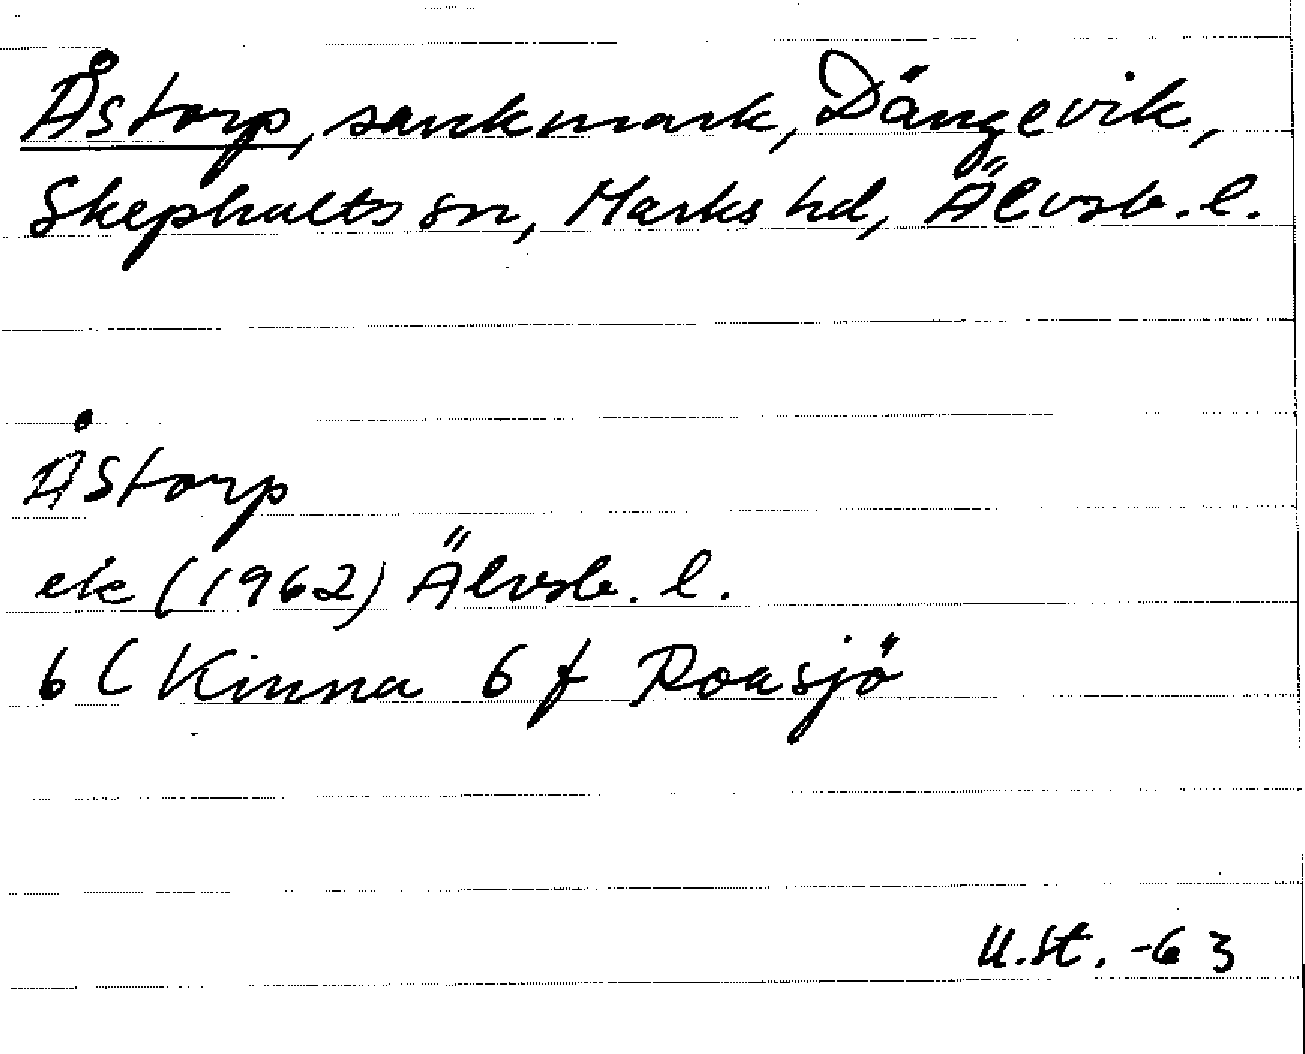 Åstorp, sankmark, Dängevik,
Skephults sn, Marks hd, Älvsb. l.
Åstorp
ek (1962) Älvsb. l.
6 C Kinna 6 f Roasjö
U.St. -63